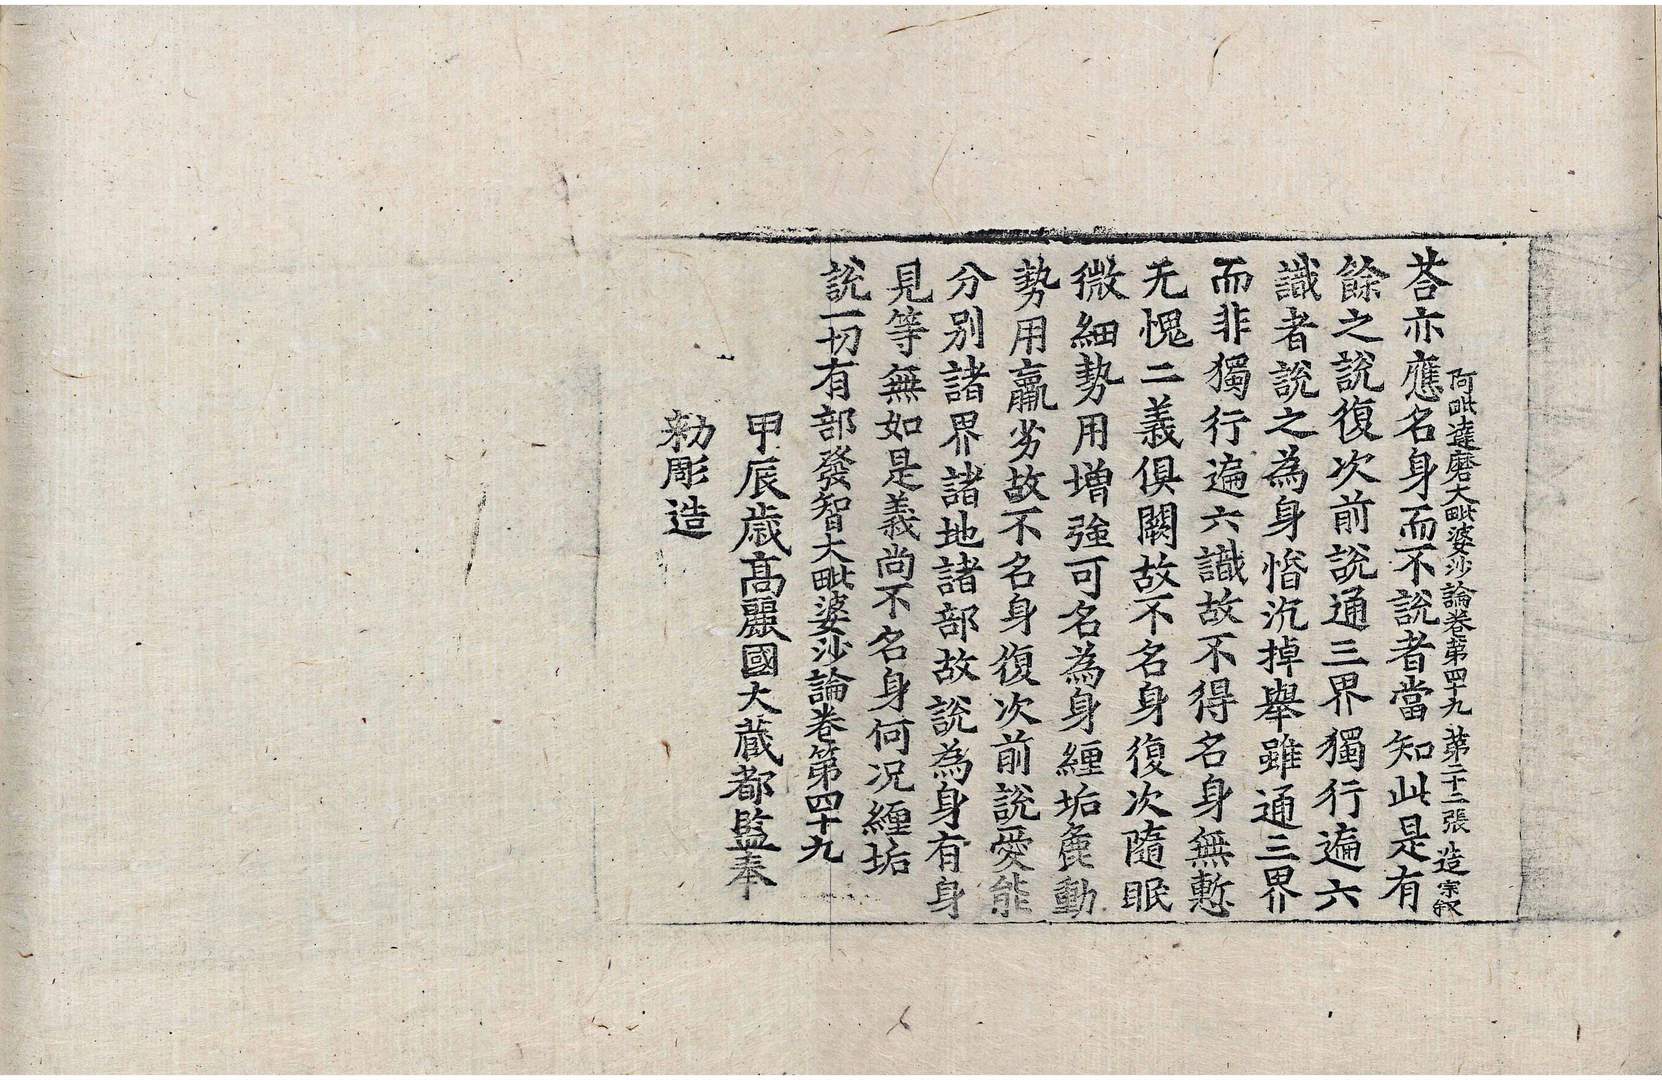 阿毗達磨大毗婆沙論卷第四十九 第二十二張 造 宗叙
荅亦應名身而不說者當知此是有
餘之說復次前說通三界獨行遍六
識者說之為身惛沉掉舉雖通三界
而非獨行遍六識故不得名身無慙
无愧二義俱闕故不名身復次隨眠
微細勢用增強可名為身纏垢麁動
勢用羸劣故不名身復次前說愛能
分別諸界諸地諸部故說為身有身
見等無如是義尚不名身何况纏垢
說一切有部發智大毗婆沙論卷第四十九
甲辰歲高麗國大藏都監奉
勑彫造